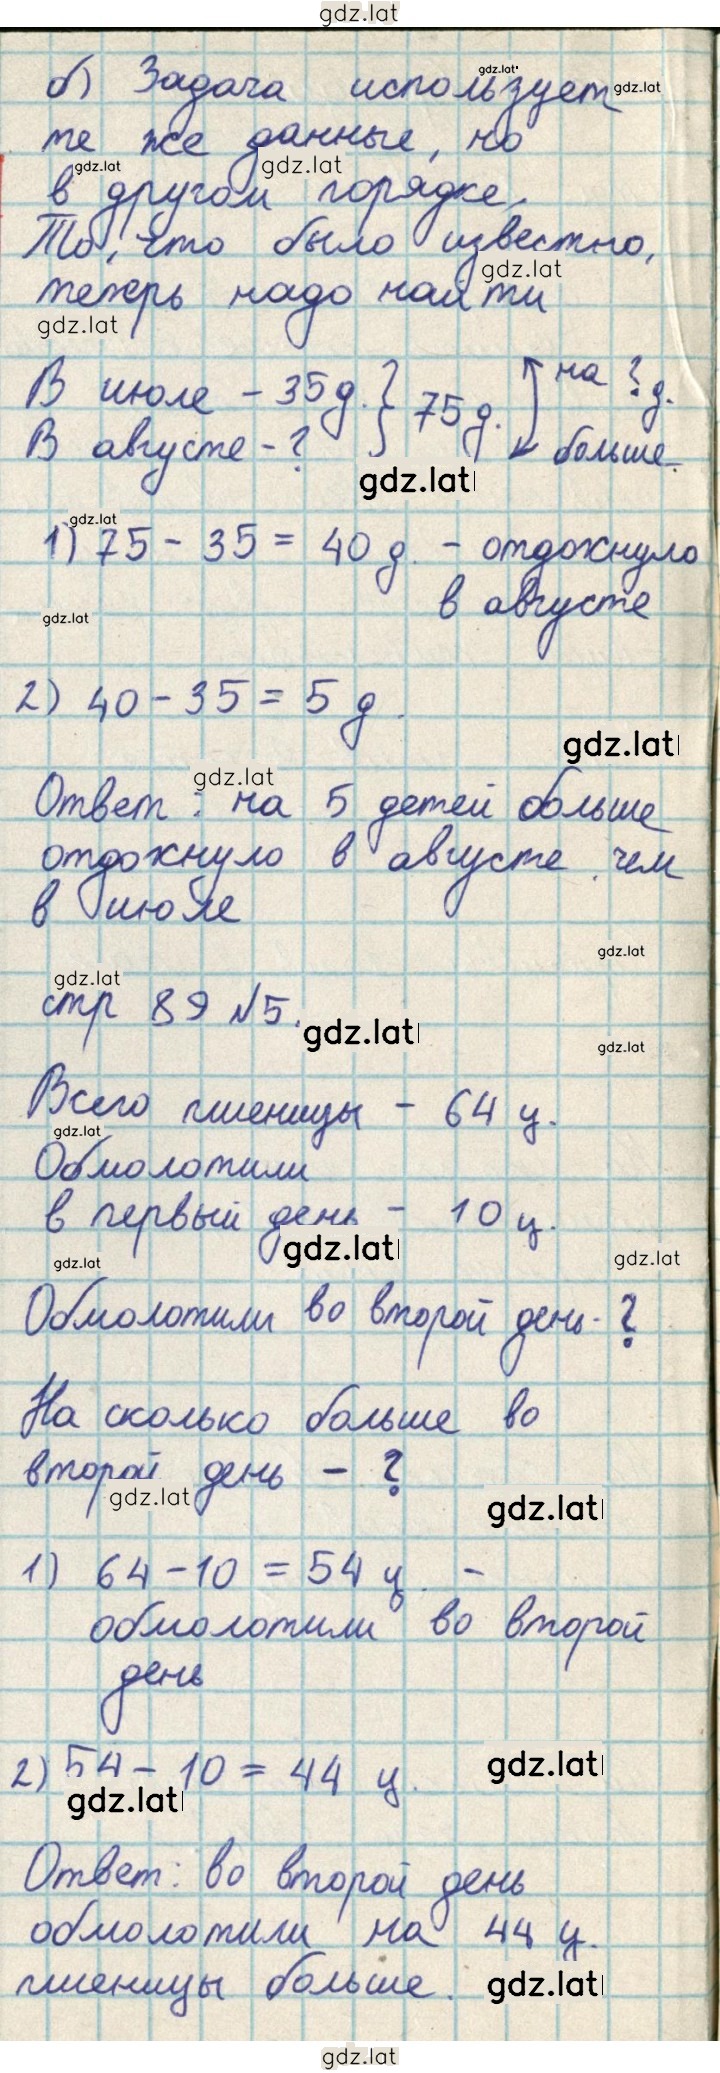 gdz.lat
б) Задача использует
те же данные, но
в другом порядке.
То, что было известно,
теперь надо найти
В июле - 35 д. } 75 д. на ? д.
В августе - ? больше.
1) 75 - 35 = 40 д. - отдохнуло
в августе
2) 40 - 35 = 5 д.
Ответ: на 5 детей больше
отдохнуло в августе, чем
в июле
стр 89 №5.
Всего пшеницы - 64 ц.
Обмолотили
в первый день - 10 ц.
Обмолотили во второй день - ?
На сколько больше во
второй день - ?
1) 64 - 10 = 54 ц. -
обмолотили во второй
день
2) 54 - 10 = 44 ц.
Ответ: во второй день
обмолотили на 44 ц.
пшеницы больше.
gdz.lat